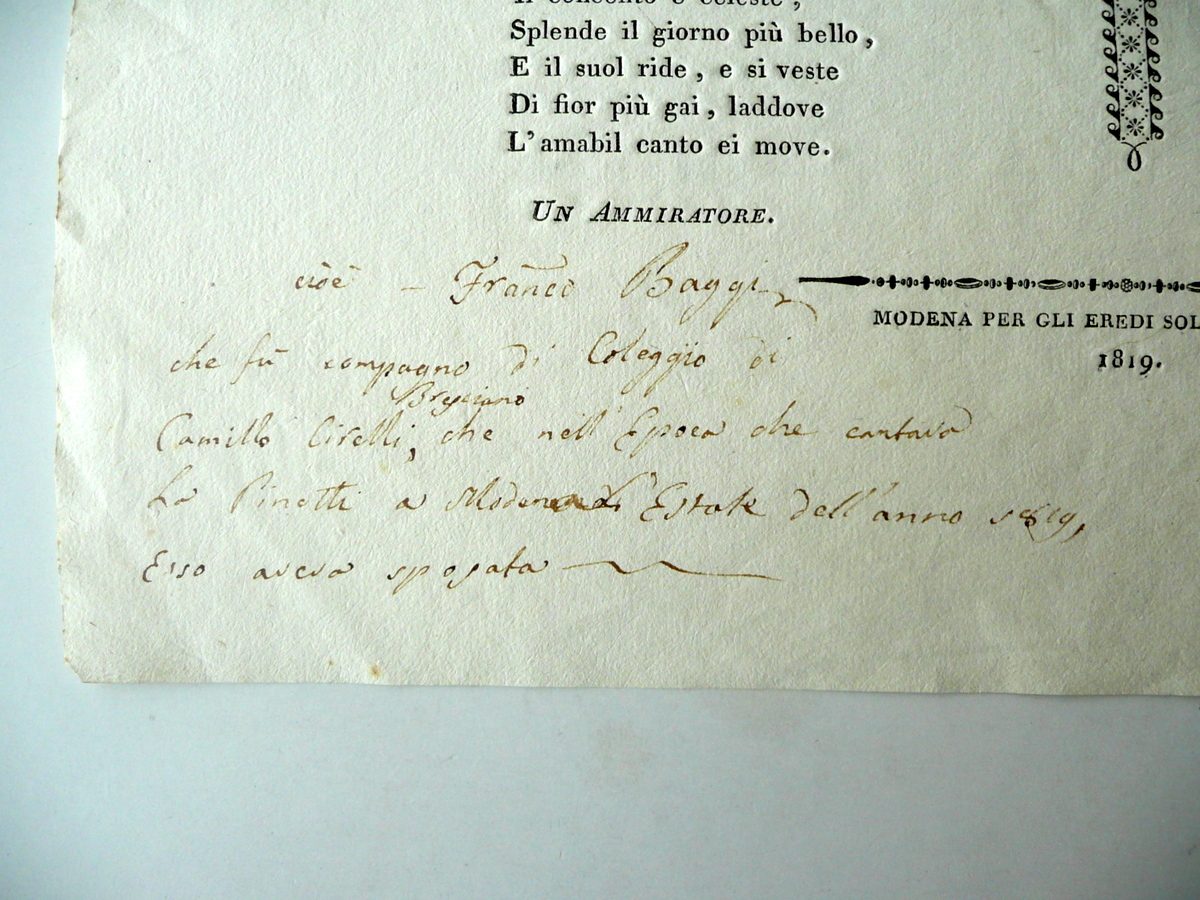 Il concento è celeste,
Splende il giorno più bello,
E il suol ride, e si veste
Di fior più gai, laddove
L'amabil canto ei move.
UN AMMIRATORE.
cioè - Franco Baggi
MODENA PER GLI EREDI SOL
1819.
che fù compagno di Coleggio di
Bresciano
Camillo Cirelli, che nell'Epoca che cantava
La Pinotti a Modena L'Estate dell'anno 1819,
Esso aveva sposata